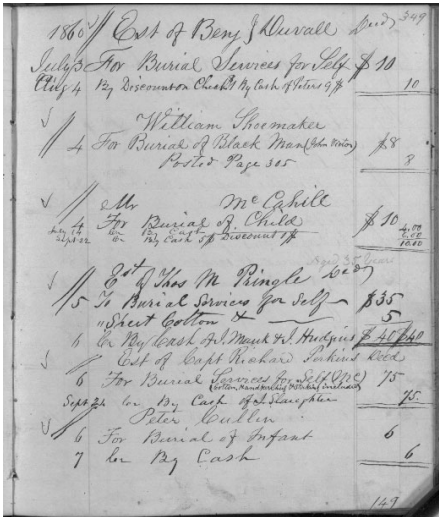 349
1865 Est of Benj J Duvall Decd
July 3 For Burial Services for Self $10
Aug 4 By Discount on 10
William Shoemaker
4 For Burial of Black Man $8
Posted Page 305 8
Mr McCahill
4 For Burial of Child $10
July 14 Cr By Cash 4.00
Sept 22 Cr By Cash 5$ Discount 1$ 6.00
10.00
Est of Thos M Pringle Decd
5 To Burial Services for Self $35
" Sheet Cotton & 5
6 Cr By Cash of J. Mauk & J. Hudgins $40 $40
Est of Capt Richard Decd
6 For Burial Services for Self 75
Sept 24 Cr By Cash of J. Slaughter 75
Peter Cullin
6 For Burial of Infant 6
7 Cr By Cash 6
149